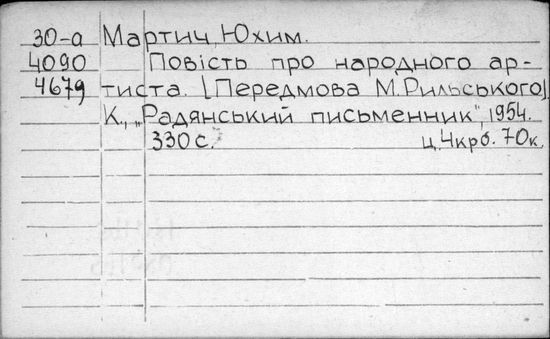 30-а Мартич, Юхим.
4090 Повість про народного ар-
4679 тиста. [Передмова М. Рильського].
К., „Радянський письменник", 1954.
330 с. ц. 4крб. 70к.